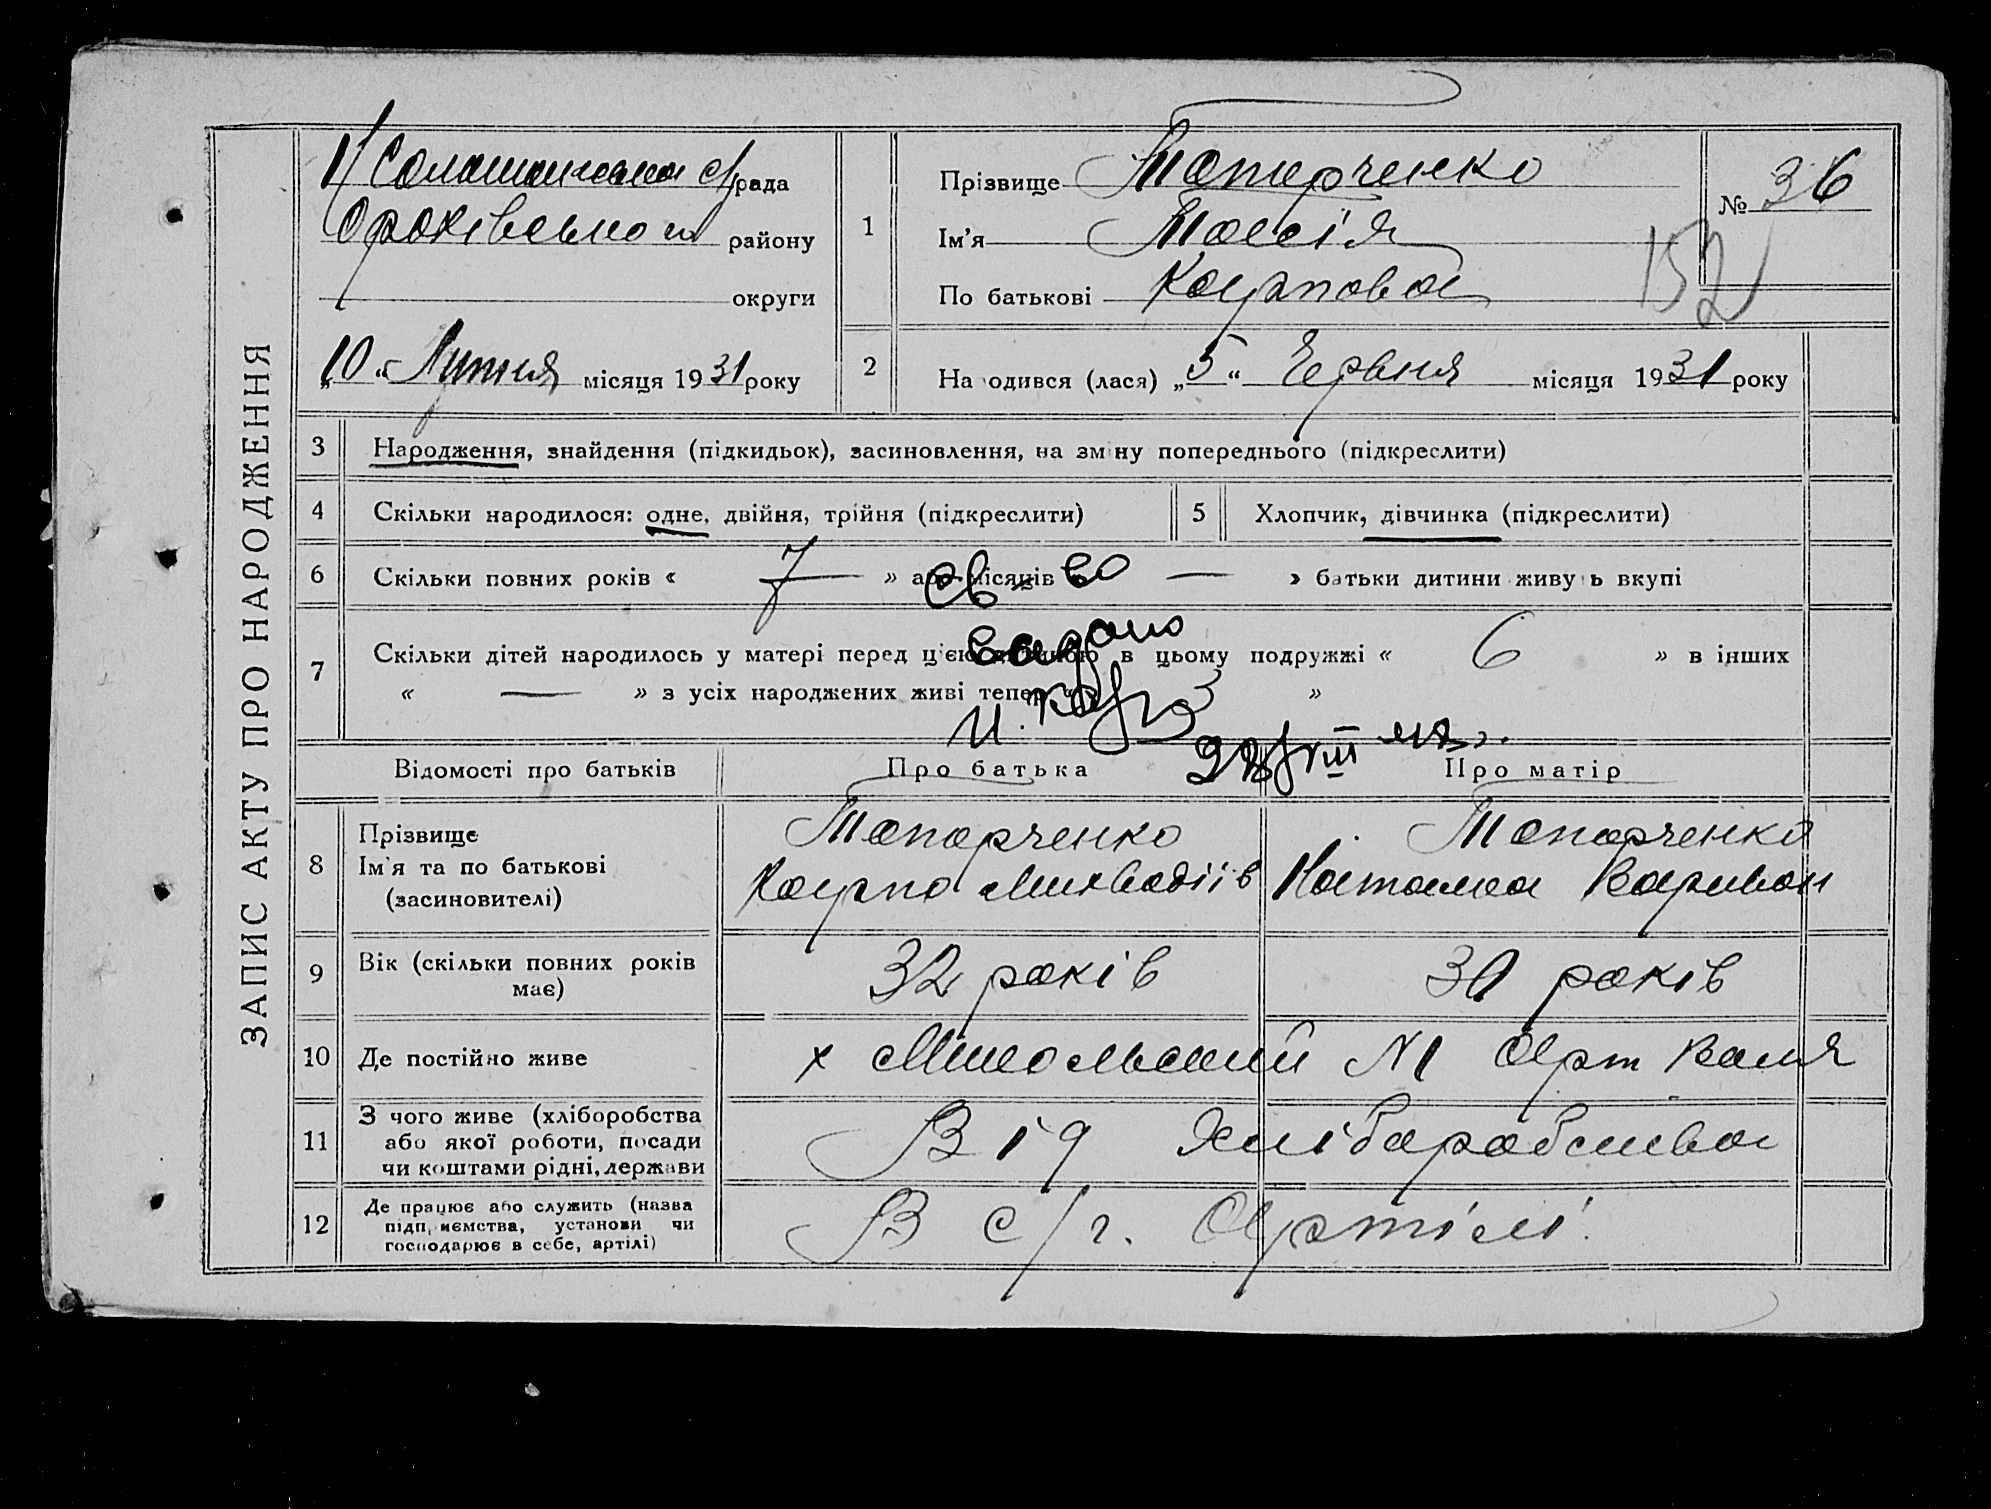 ЗАПИС АКТУ ПРО НАРОДЖЕННЯ
с/рада
Оріхівського району
округи
"10" Липня місяця 1931 року
1
Прізвище Топорченко
Ім'я Таісія
По батькові Карповна
№ 36
152
2
На одився (лася) „5“ Червня місяця 1931 року
3 Народження, знайдення (підкидьок), засиновлення, на зміну попереднього (підкреслити)
4 Скільки народилося: одне, двійня, трійня (підкреслити)
5 Хлопчик, дівчинка (підкреслити)
6 Скільки повних років « 7 » або місяців — » батьки дитини живуть вкупі
Св-во
7 Скільки дітей народилось у матері перед цією дитиною в цьому подружжі « 6 » в інших
« — » з усіх народжених живі тепер « 3 »
Відомості про батьків
Про батька
Про матір
8 Прізвище
Ім'я та по батькові
(засновителі)
Топорченко
Карпо
Топорченко
9 Вік (скільки повних років має)
32 років
30 років
10 Де постійно живе
х №1 Арт
11 З чого живе (хліборобства
або якої роботи, посади
чи коштами рідні, держави
Від Хліборобства
12 Де працює або служить (назва
підприємства, установи чи
господарює в себе, артілі)
В с/г. Артілі.